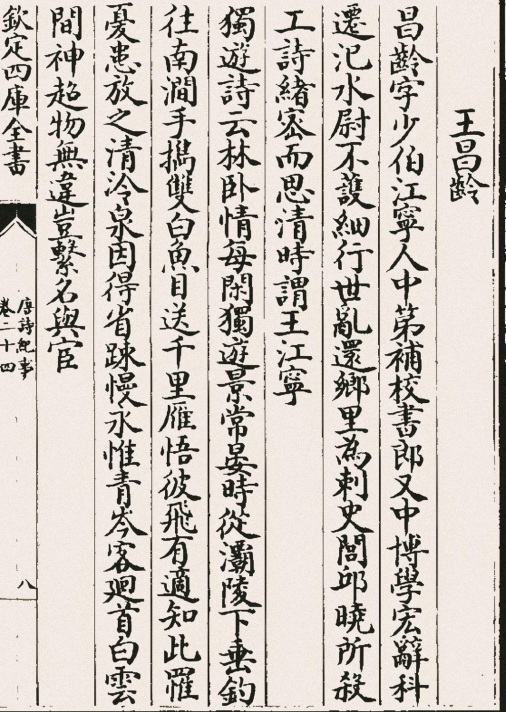 王昌齡
昌齡字少伯江寧人中第補校書郎又中博學宏辭科
遷汜水尉不護細行世亂還鄉里為刺史閭邱曉所殺
工詩緒密而思清時謂王江寧
獨遊詩云林卧情每閑獨遊景常晏時從灞陵下垂釣
往南澗手攜雙白魚目送千里雁悟彼飛有適知此罹
憂患放之清冷泉因得省踈慢永惟青岑客廻首白雲
間神超物無違豈繫名與宦
欽定四庫全書
唐詩紀事
卷二十四
八